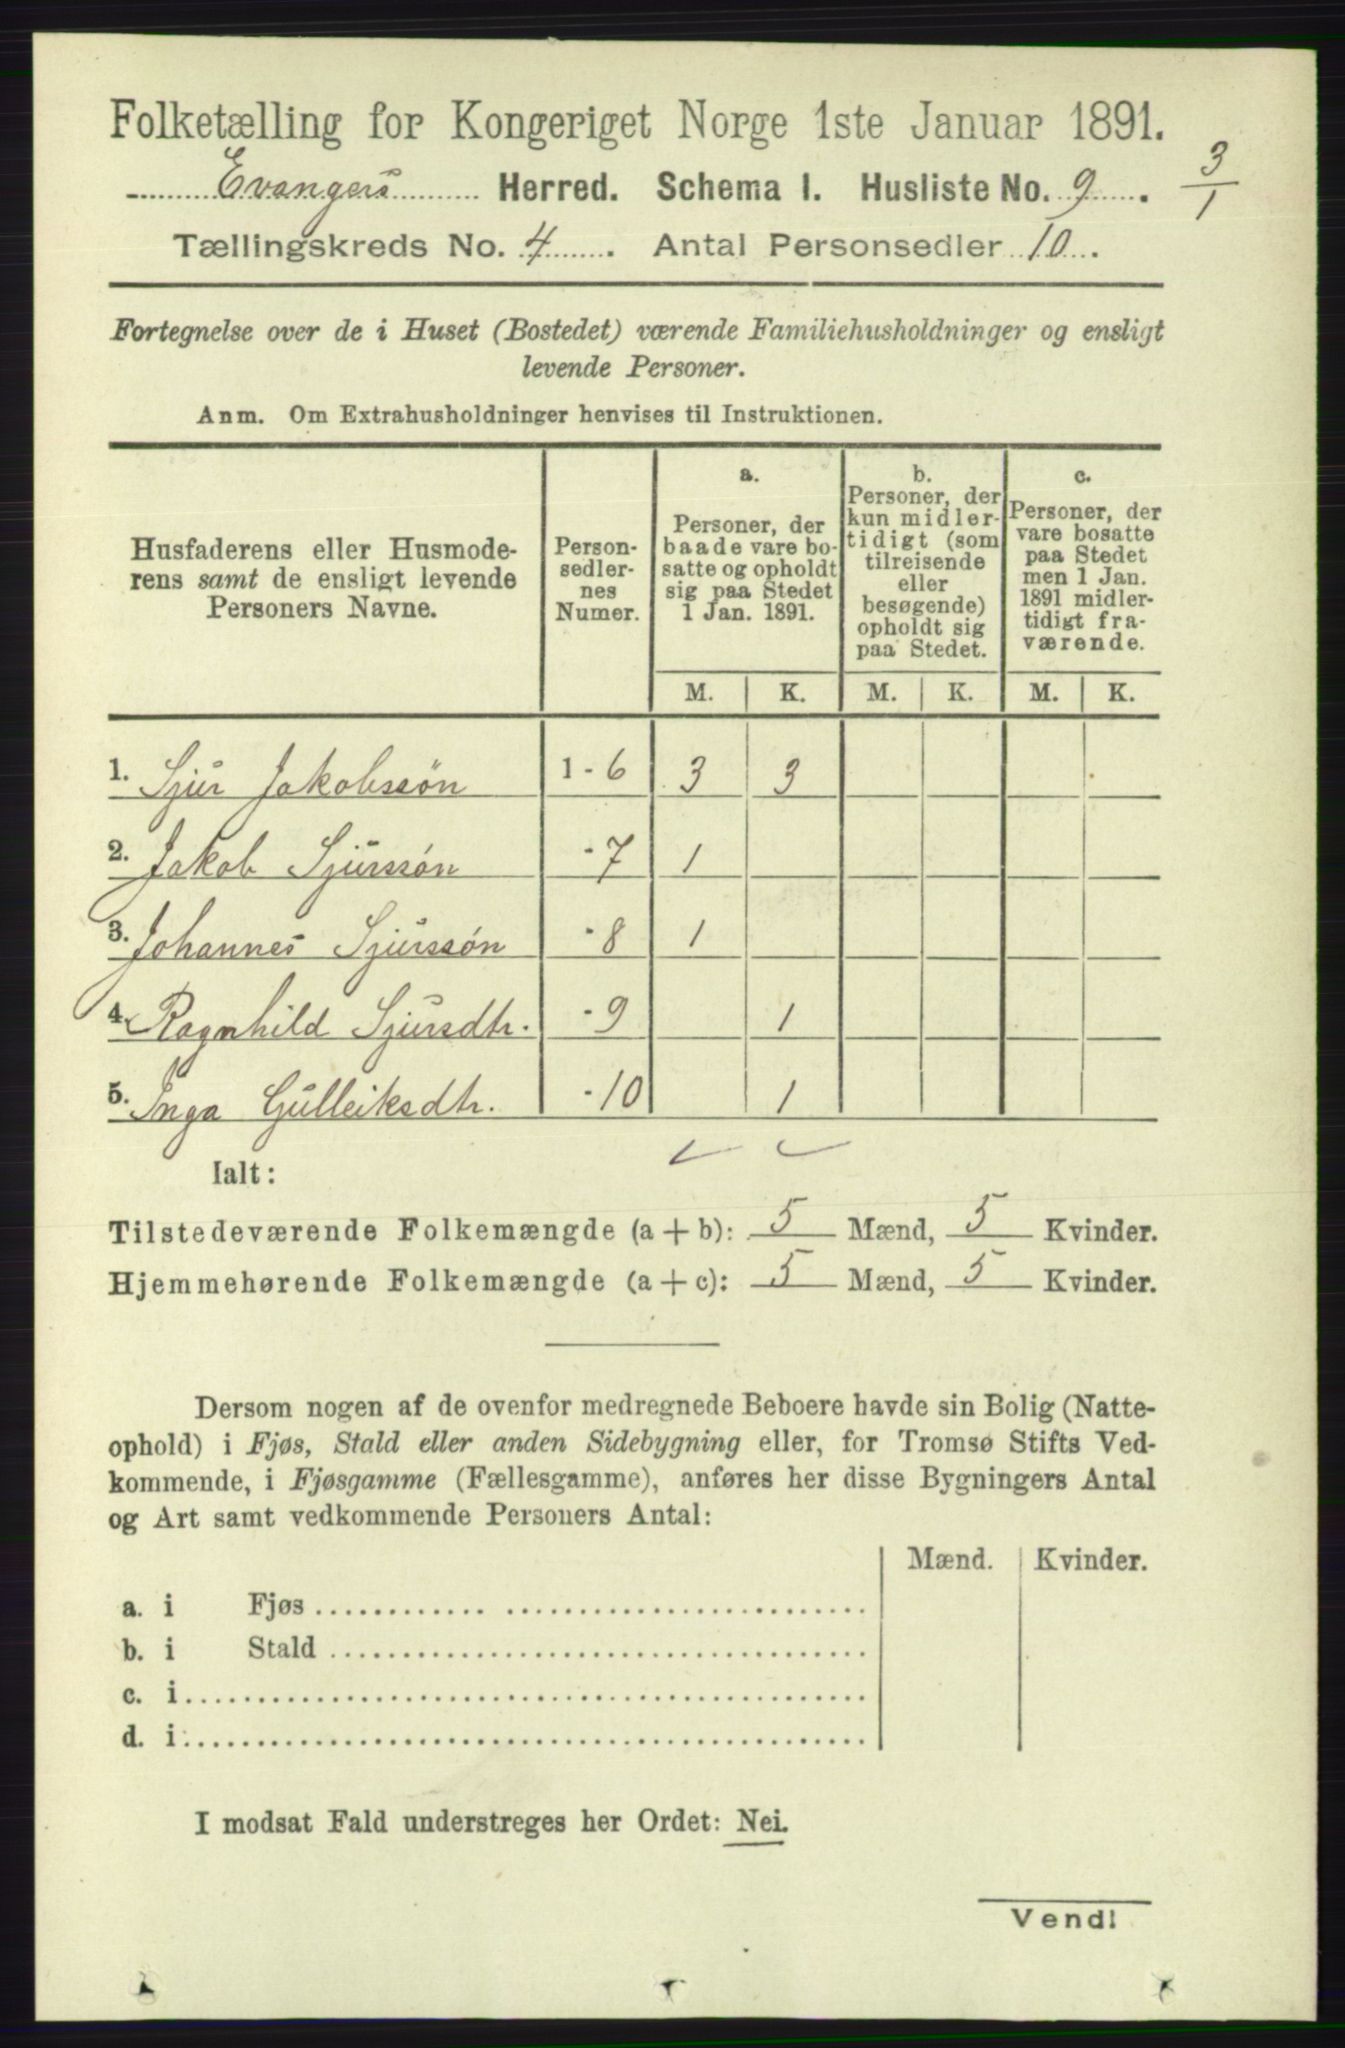 Folketælling for Kongeriget Norge 1ste Januar 1891.
Evangers Herred. Schema I. Husliste No. 9. 3/1
Tællingskreds No. 4. Antal Personsedler 10.
Fortegnelse over de i Huset (Bostedet) værende Familiehusholdninger og ensligt
levende Personer.
Anm. Om Extrahusholdninger henvises til Instruktionen.
Husfaderens eller Husmode-
rens samt de ensligt levende
Personers Navne.
Person-
sedler-
nes
Numer.
a.
Personer, der
baade vare bo-
satte og opholdt
sig paa Stedet
1 Jan. 1891.
b.
Personer, der
kun midler-
tidigt (som
tilreisende
eller
besøgende)
opholdt sig
paa Stedet.
c.
Personer, der
vare bosatte
paa Stedet
men 1 Jan.
1891 midler-
tidigt fra-
værende.
M. K. M. K. M. K.
1. Sjur Jakobssøn 1 - 6 3 3
2. Jakob Sjurssøn - 7 1
3. Johannes Sjurssøn - 8 1
4. Ragnhild Sjursdtr. - 9 1
5. Inga Gulleiksdtr. - 10 1
Ialt:
Tilstedeværende Folkemængde (a + b): 5 Mænd, 5 Kvinder.
Hjemmehørende Folkemængde (a + c): 5 Mænd, 5 Kvinder.
Dersom nogen af de ovenfor medregnede Beboere havde sin Bolig (Natte-
ophold) i Fjøs, Stald eller anden Sidebygning eller, for Tromsø Stifts Ved-
kommende, i Fjøsgamme (Fællesgamme), anføres her disse Bygningers Antal
og Art samt vedkommende Personers Antal:
Mænd. Kvinder.
a. i Fjøs
b. i Stald
c. i
d. i
I modsat Fald understreges her Ordet: Nei.
Vend!